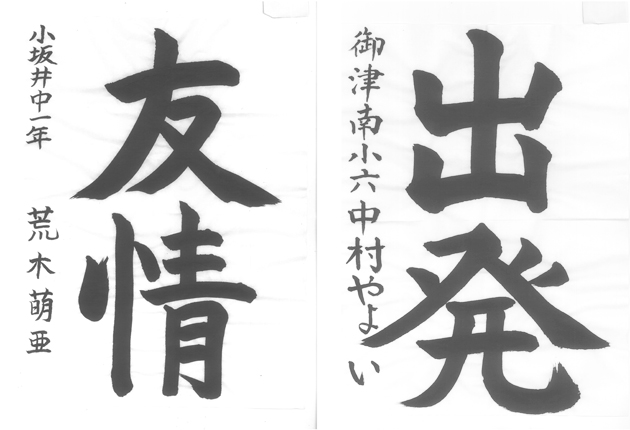 友情
小坂井中一年 荒木萌亜
出発
御津南小六中村やよい